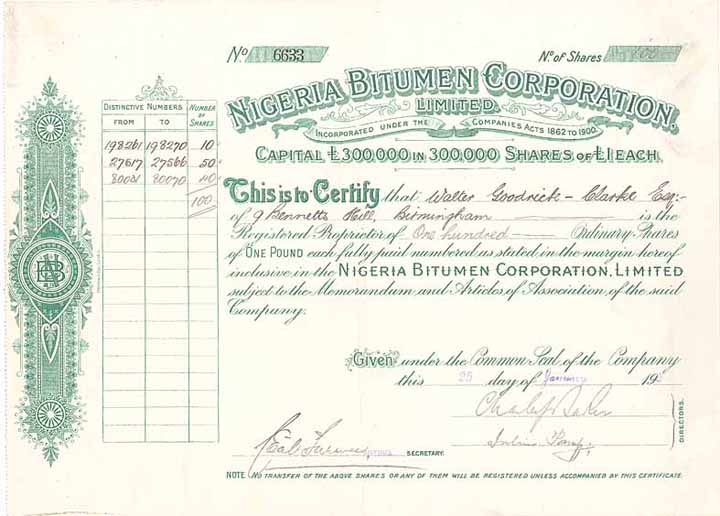 No. 6633 No. of Shares 100
NIGERIA BITUMEN CORPORATION,
LIMITED.
INCORPORATED UNDER THE COMPANIES ACTS 1862 TO 1900.
CAPITAL £300,000 IN 300,000 SHARES OF £1 EACH.
DISTINCTIVE NUMBERS NUMBER OF SHARES
FROM TO
198261 198270 10
27517 27566 50
40
100
This is to Certify that Walter Goodrick-Clarke Esq:-
of 9 Bennetts Hill, Birmingham is the
Registered Proprietor of One hundred Ordinary Shares
of ONE POUND each fully paid numbered as stated in the margin hereof
inclusive in the NIGERIA BITUMEN CORPORATION, LIMITED
subject to the Memorandum and Articles of Association of the said
Company.
Given under the Common Seal of the Company
this 25 day of January 19
DIRECTORS.
SECRETARY.
NOTE. NO TRANSFER OF THE ABOVE SHARES OR ANY OF THEM WILL BE REGISTERED UNLESS ACCOMPANIED BY THIS CERTIFICATE.